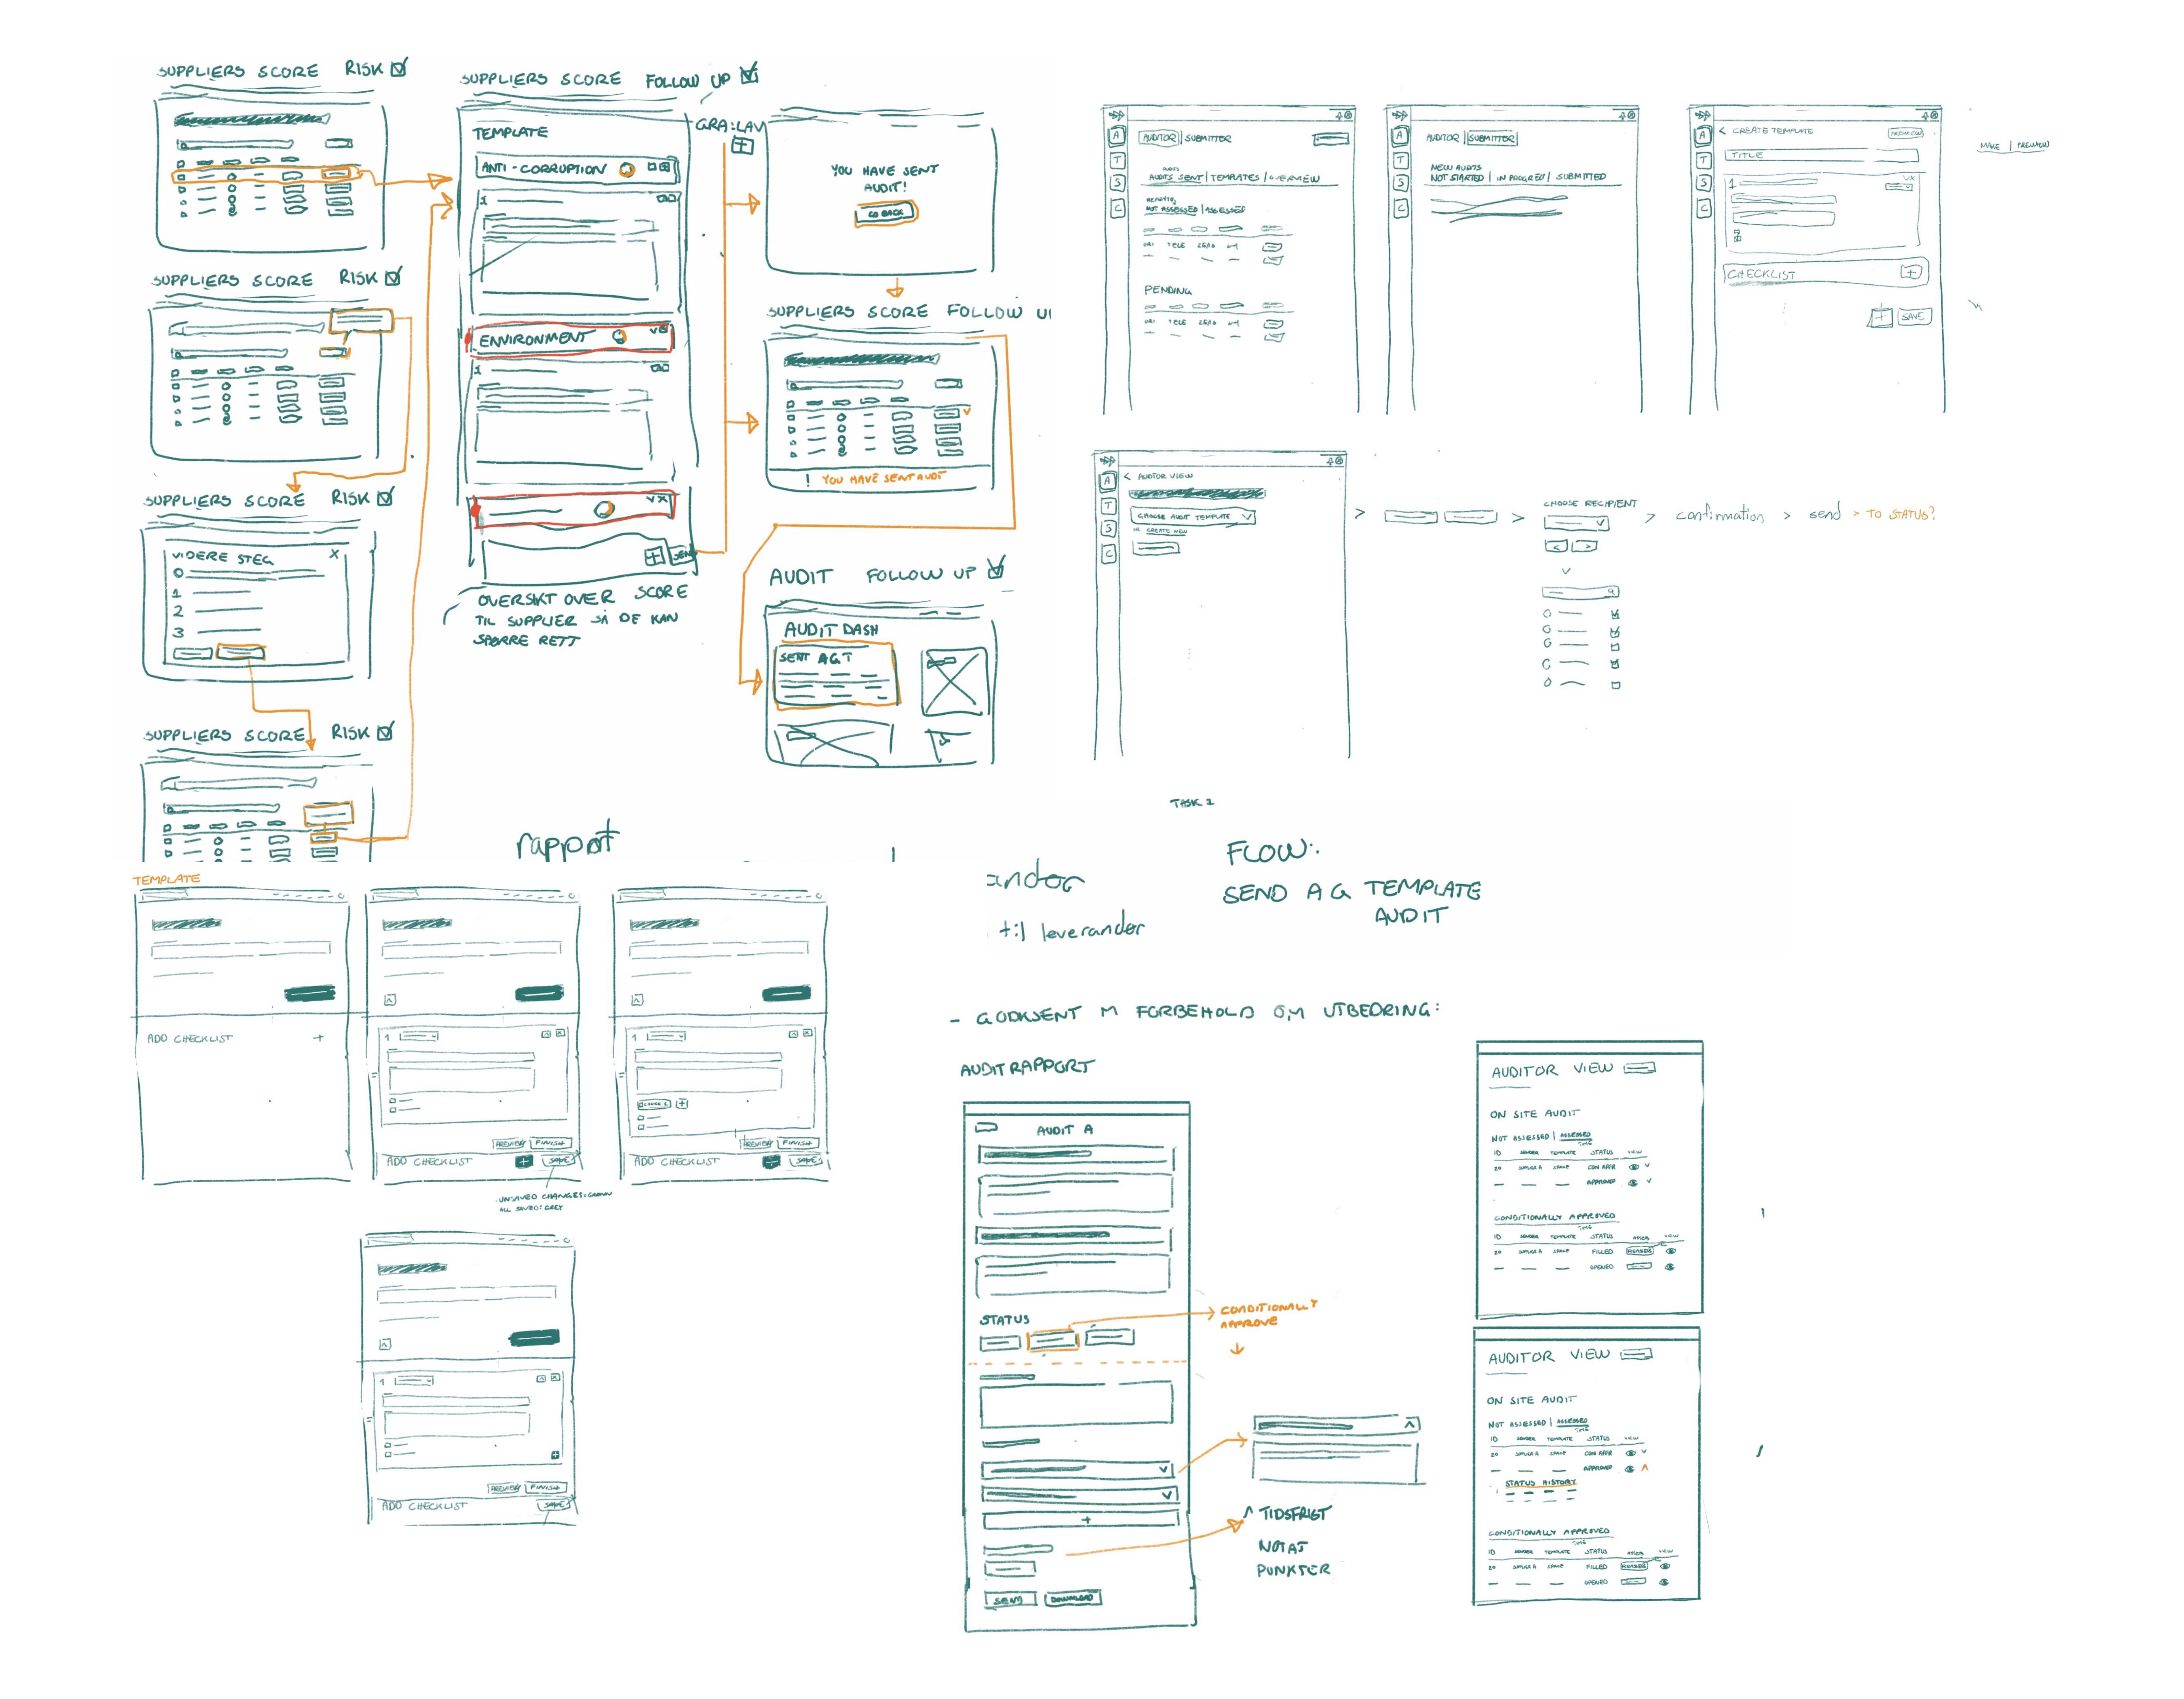 SUPPLIERS SCORE RISK
SUPPLIERS SCORE RISK
SUPPLIERS SCORE RISK
VIDERE STEG X
0
1
2
3
SUPPLIERS SCORE RISK
SUPPLIERS SCORE FOLLOW UP
TEMPLATE
ANTI-CORRUPTION
1
ENVIRONMENT
1
SEND
OVERSIKT OVER SCORE
TIL SUPPLIER SÅ DE KAN
SPØRRE RETT
YOU HAVE SENT
AUDIT!
GO BACK
SUPPLIERS SCORE FOLLOW U
! YOU HAVE SENT AUDIT
AUDIT FOLLOW UP
AUDIT DASH
SENT AGT
A
T
S
C
AUDITOR | SUBMITTER
AUDITS SENT | TEMPLATES | OVERVIEW
NOT ASSESSED | ASSESSED
PENDING
A
T
S
C
AUDITOR | SUBMITTER
NEW AUDITS
NOT STARTED | IN PROGRED | SUBMITTED
A
T
S
C
< CREATE TEMPLATE PREVIEW
TITLE
1
CHECKLIST +
+ SAVE
MAKE | PREVIEW
A
T
S
C
< AUDITOR VIEW
CHOOSE AUDIT TEMPLATE
OR CREATE NEW
>
>
CHOOSE RECIPIENT
< >
> confirmation > send > TO STATUS?
TASK 1
FLOW:
SEND A G TEMPLATE
AUDIT
rapport
til leverandør
TEMPLATE
ADD CHECKLIST +
1
PREVIEW FINISH
ADD CHECKLIST + SAVE
UNSAVED CHANGES: GREEN
ALL SAVED: GREY
1
PREVIEW FINISH
ADD CHECKLIST + SAVE
1
PREVIEW FINISH
ADD CHECKLIST SAVE
- GODKJENT M FORBEHOLD OM UTBEDRING:
AUDITRAPPORT
AUDIT A
STATUS
CONDITIONALLY
APPROVE
+
SEND DOWNLOAD
TIDSFRIST
NOTAT
PUNKTER
AUDITOR VIEW
ON SITE AUDIT
NOT ASSESSED | ASSESSED
ID SENDER TEMPLATE STATUS VIEW
CON APPR
APPROVED
CONDITIONALLY APPROVED
ID SENDER TEMPLATE STATUS VIEW
FILLED
OPENED
AUDITOR VIEW
ON SITE AUDIT
NOT ASSESSED | ASSESSED
ID SENDER TEMPLATE STATUS VIEW
CON APPR
APPROVED
STATUS HISTORY
CONDITIONALLY APPROVED
ID SENDER TEMPLATE STATUS VIEW
FILLED
OPENED